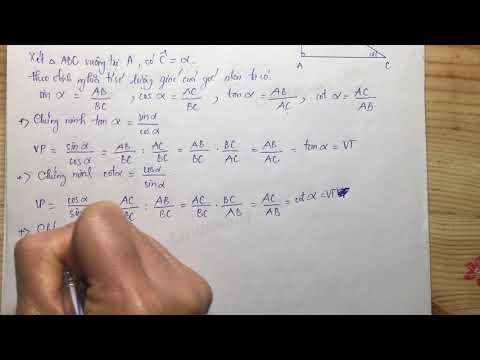 Xét △ ABC vuông tại A, có Ĉ = α.
theo định nghĩa tỉ số lượng giác của góc nhọn ta có:
sin α = AB/BC, cos α = AC/BC, tan α = AB/AC, cot α = AC/AB
+) Chứng minh tan α = sin α/cos α
VP = sin α/cos α = AB/BC : AC/BC = AB/BC . BC/AC = AB/AC = tan α = VT
+) Chứng minh cot α = cos α/sin α
VP = cos α/sin AC/BC : AB/BC = AC/BC . BC/AB = AC/AB = cot α = VT
+)
A
α
C